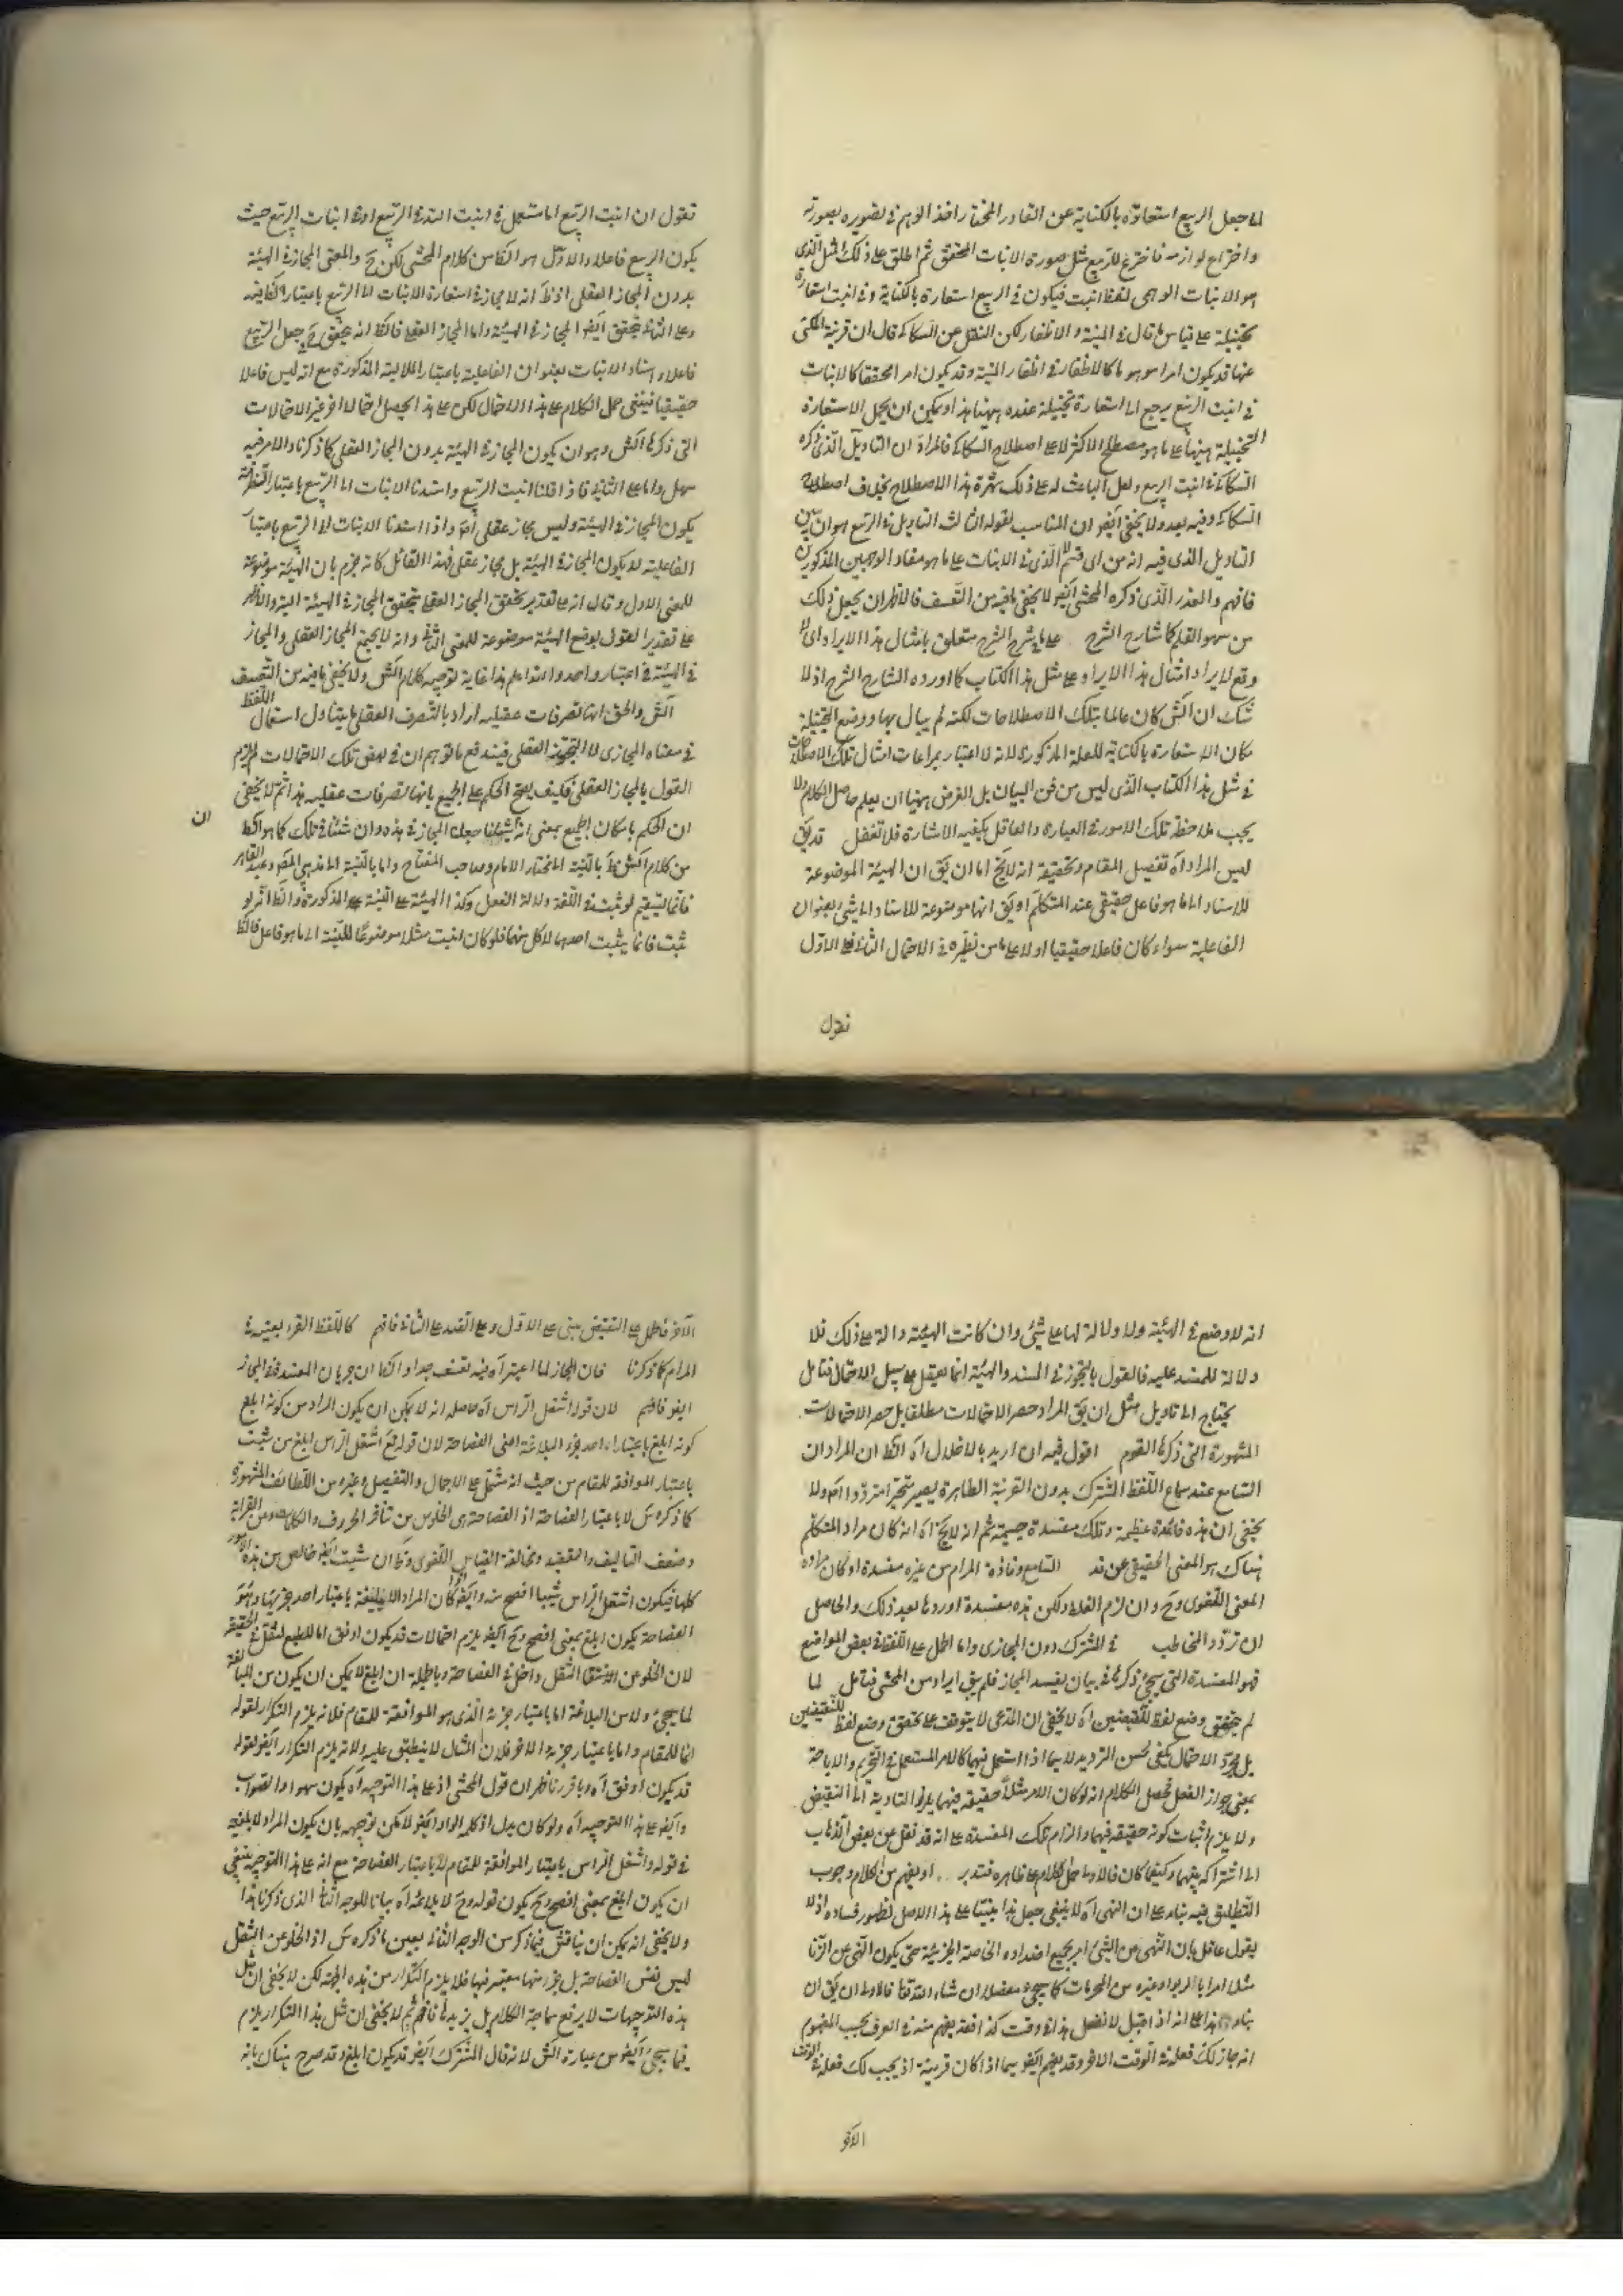 لما جعل الربيع استعارة بالكناية عن القادر المختار اخذ الوهم في تصويره بصورته
واختراع لوازمه فاخترع للربيع مثل صورة الانبات المحقق ثم اطلق على ذلك المثل الذي
هو الانبات الوهمي لفظ انبت فيكون في الربيع استعارة بالكناية وفي انبت استعارة
تخييلية على قياس ما قال في المنية والاظفار لكن النقل عن السكاكي قال ان قرينة المكني
عنها قد يكون امرا موهوما كالاظفار في اظفار المنية وقد يكون امرا محققا كالانبات
في انبت الربيع يرجع الى استعارة تخييلية عنده ههنا هذا ويمكن ان يحمل الاستعارة
التخييلية ههنا على ما هو مصطلح الاكثر لا على اصطلاح السكاكي فالمراد ان التاويل الذي ذكره
السكاكي في انبت الربيع ولعل الباعث له على ذلك شهرة هذا الاصطلاح بخلاف اصطلاح
السكاكي وفيه بعد ولا يخفى ايضا ان المناسب لقوله الثالث التاويل في الربيع هو ان يبين
التاويل الذي فيه انه من اي قسم لا الذي في الانبات على ما هو مفاد الوجهين المذكورين
فافهم والعذر الذي ذكره المحشي ايضا لا يخفى ما فيه من التعسف فالاظهر ان يجعل ذلك
من سهو القلم كما شارح الشرح على ما في شرح الشرح متعلق بامثال هذا الايراد اي لا
وقع لايراد امثال هذا الايراد على مثل هذا الكتاب كما اورده الشارح الشرح اذ لا
شك ان الش كان عالما بتلك الاصطلاحات لكنه لم يبال بها ووضع التخييلية
مكان الاستعارة بالكناية للعلة المذكورة لانه لا اعتبار بمراعات امثال تلك الاصطلاحات
في مثل هذا الكتاب الذي ليس من فن البيان بل الغرض ههنا ان يعلم حاصل الكلام ولا
يجب ملاحظة تلك الامور في العبارة والعاقل يكفيه الاشارة فلا تغفل قد يق
ليس المراد اه تفصيل المقام وتحقيقه انه لا يخ اما ان يق ان الهيئة الموضوعة
للاسناد الى ما هو فاعل حقيقي عند المتكلم او يق انها موضوعة للاسناد الى شئ بعنوان
الفاعلية سواء كان فاعلا حقيقيا او لا على ما من نظيره في الاحتمال الثاني فعلى الاول
نقول
تقول ان انبت الربيع اما مستعمل في انبت الله في الربيع او في انبات الربيع حيث
يكون الربيع فاعلا والاول هو الظ من كلام المحشي لكن ح والمعنى المجاز في الهيئة
بدون المجاز العقلي اذ ظ انه لا مجاز في استعارة الانبات الى الربيع باعتبار الظرفية
وعلى الثاني يتحقق ايضا المجاز في الهيئة واما المجاز العقلي فالظ انه يتحقق ح في جعل الربيع
فاعلا واسناد الانبات بعنوان الفاعلية باعتبار الملابسة المذكورة مع انه ليس فاعلا
حقيقيا فينبغي حمل الكلام على هذا الاحتمال لكن على هذا يحصل احتمالا اخر غير الاحتمالات
التي ذكرها الش وهو ان يكون المجاز في الهيئة بدون المجاز العقلي كما ذكرنا والامر فيه
سهل واما على الثاني فاذا قلنا انبت الربيع واسندنا الانبات الى الربيع باعتبار الظرفية
يكون المجاز في الهيئة وليس مجاز عقلي اصلا واذا اسندنا الانبات الى الربيع باعتبار
الفاعلية لا يكون المجاز في الهيئة بل مجاز عقلي فهذا القائل كانه جزم بان الهيئة موضوعة
للمعنى الاول وقال انه على تقدير تحقق المجاز العقلي يتحقق المجاز في الهيئة البتة والاظهر
على تقدير القول بوضع الهيئة موضوعة للمعنى الثاني وانه لا يجتمع المجاز العقلي والمجاز
في الهيئة في اعتبار واحد والله اعلم هذا غاية توجيه كلام الش ولا يخفى ما فيه من التعسف
الش والحق انها تصرفات عقلية اراد بالتصرف العقلي ما يتناول استعمال اللفظ
في معناه المجازي لا التجوز العقلي فيندفع ما توهم ان في بعض تلك الاحتمالات لم يلزم
القول بالمجاز العقلي فكيف يصح الحكم على الجميع بانها تصرفات عقلية هذا ثم لا يخفى
ان الحكم بامكان الجميع بمعنى انه ان شئنا جعلنا المجاز في هذه وان شئنا في تلك كما هو الظ
ان
من كلام الش ظ بالنسبة الى مختار الامام وصاحب المفتاح واما بالنسبة الى مذهب المص وعبد القاهر
فانما يستقيم لو ثبت في اللغة دلالة الفعل وكذا الهيئة على النسبة المذكورة والظ انه لو
ثبت فانما يثبت احدهما لا كل منهما فلو كان انبت مثلا موضوعا للنسبة الى ما هو فاعل فالظ
انه لا وضع في الهيئة ولا دلالة لها على شئ وان كانت الهيئة دالة على ذلك فلا
دلالة للمسند عليه فالقول بالتجوز في المسند والهيئة انما يعقل على سبيل الاحتمال فتامل
يحتاج الى تاويل مثل ان يق المراد حصر الاحتمالات مطلقا بل حصر الاحتمالات
المشهورة التي ذكرها القوم اقول فيه ان اريد بالاخلال اه الظ ان المراد ان
السامع عند سماع اللفظ المشترك بدون القرينة الظاهرة يصير متحيرا مترددا اه ولا
يخفى ان هذه فائدة عظيمة وتلك مفسدة جسيمة ثم انه لا يخ اه انه كان مراد المتكلم
هناك هو المعنى الحقيقي عن قد السامع وفاده المرام من غيره مفسدة او كان مراده
المعنى اللغوي وح وان لزم الغلط ولكن هذه مفسدة اوردها بعد ذلك والحاصل
ان تردد المخاطب في المشترك دون المجازي واما الحل على اللفظ في بعض المواضع
فهو المفسدة التي سيجئ ذكرها في بيان مفسد المجاز فلم يبق ايراد من المحشي فتامل لما
لم يتحقق وضع لفظ للنقيضين اه لا يخفى ان المدعى لا يتوقف على تحقق وضع لفظ للنقيضين
بل مجرد الاحتمال يكفي لحسن الترديد لا سيما اذا استعمل فيهما كالامر المستعمل في التحريم والاباحة
بمعنى جواز الفعل فحصل الكلام انه لو كان الامر مثلا حقيقة فيهما يلزم التادية الى النقيض
ولا يلزم اثبات كونه حقيقة فيهما والزام تلك المفسدة على انه قد نقل عن بعض الذهاب
الى اشتراكه بينهما وكيفما كان فالاولى حمل الكلام على ظاهره فتدبر او يفهم من الكلام وجوب
التطليق فيه بناء على ان النهي اه لا ينبغي جعل هذا مبنيا على هذا الاصل لظهور فساده اذ لا
يقول عاقل بان النهي عن الشئ امر بجميع اضداده الخاصة الجزئية حتى يكون النهي عن الزنا
مثلا امرا بالربوا وغيره من المحرمات كما سيجئ مفصلا ان شاء الله تعالى فالاولى ان يق ان
بناء هذا على انه اذا قيل لا تفعل هذا في وقت كذا فقد يفهم منه في العرف بحسب المفهوم
انه جاز لك فعله في الوقت الاخر وقد يفهم ايضا سيما اذا كان قرينة اذ يجب لك فعله في الوقت
الاخر
الاخر فالحل على النقيض مبني على الاول وعلى الضد على الثاني فافهم كاللفظ القرء بعينه في
المرام كما ذكرنا فان المجاز لما اعتبر اه فيه تعسف جدا والظ ان جريان المفسدة في المجاز
ايضا فافهم لان قوله اشتعل الراس اه حاصله انه لا يمكن ان يكون المراد من كونه ابلغ
كونه ابلغ باعتبار احد جزء البلاغة اعني الفصاحة لان قوله تع اشتعل الراس ابلغ من شبت
باعتبار الموافقة للمقام من حيث انه مشتمل على الاجمال والتفصيل وغيره من اللطائف المشهورة
كما ذكره س لا باعتبار الفصاحة اذ الفصاحة هي الخلوص من تنافر الحروف والكلمات ومن الغرابة
وضعف التاليف والتعقيد ومخالفة القياس اللغوي وظ ان شبت ايضا خالص من هذه الامور
كلها فيكون اشتعل الراس شيبا افصح منه وايضا لو كان المراد الابلغية باعتبار احد جزئيها وهو
الفصاحة يكون ابلغ بمعنى افصح وح ايضا يلزم احتمالات قد يكون اوفق اما للطبع لثقل في الحقيقة
لان الخلو عن الثقل داخل في الفصاحة وبالجملة ان ابلغ لا يمكن ان يكون من المبالغة
لما سيجئ ولا من البلاغة اما باعتبار جزئه الذي هو الموافقة للمقام فلانه يلزم التكرار لقوله
اما للمقام واما باعتبار جزئه الاخر فلان المثال لا ينطبق عليه ولانه يلزم التكرار ايضا لقوله
قد يكون اوفق اه وبما قررنا ظهر ان قول المحشي اذ على هذا التوجيه اه يكون سهوا والصواب
وايضا على هذا التوجيه اه ولو كان بدل اذ كلمة الواو ايضا لامكن توجيهه بان يكون المراد لابلغية
في قوله واشتعل الراس باعتبار الموافقة للمقام لا باعتبار الفصاحة مع انه على هذا التوجيه ينبغي
ان يكون ابلغ بمعنى افصح وح يكون قوله وح لا يلائمه اه بيانا للوجه الثاني الذي ذكرنا هذا
ولا يخفى انه يمكن ان يناقش فيما ذكر من الوجه الثاني بعين ما ذكره س اذ الخلو عن الثقل
ليس نفس الفصاحة بل جزء منها معتبر فيها فلا يلزم التكرار من هذه الجهة لكن لا يخفى ان مثل
هذه التوجيهات لا يرفع سماجة الكلام بل يزيدها فافهم ثم لا يخفى ان مثل هذا التكرار يلزم
فيما سيجئ ايضا من عبارة الش لانه قال المشترك ايضا قد يكون ابلغ وقد صرح هناك بانه